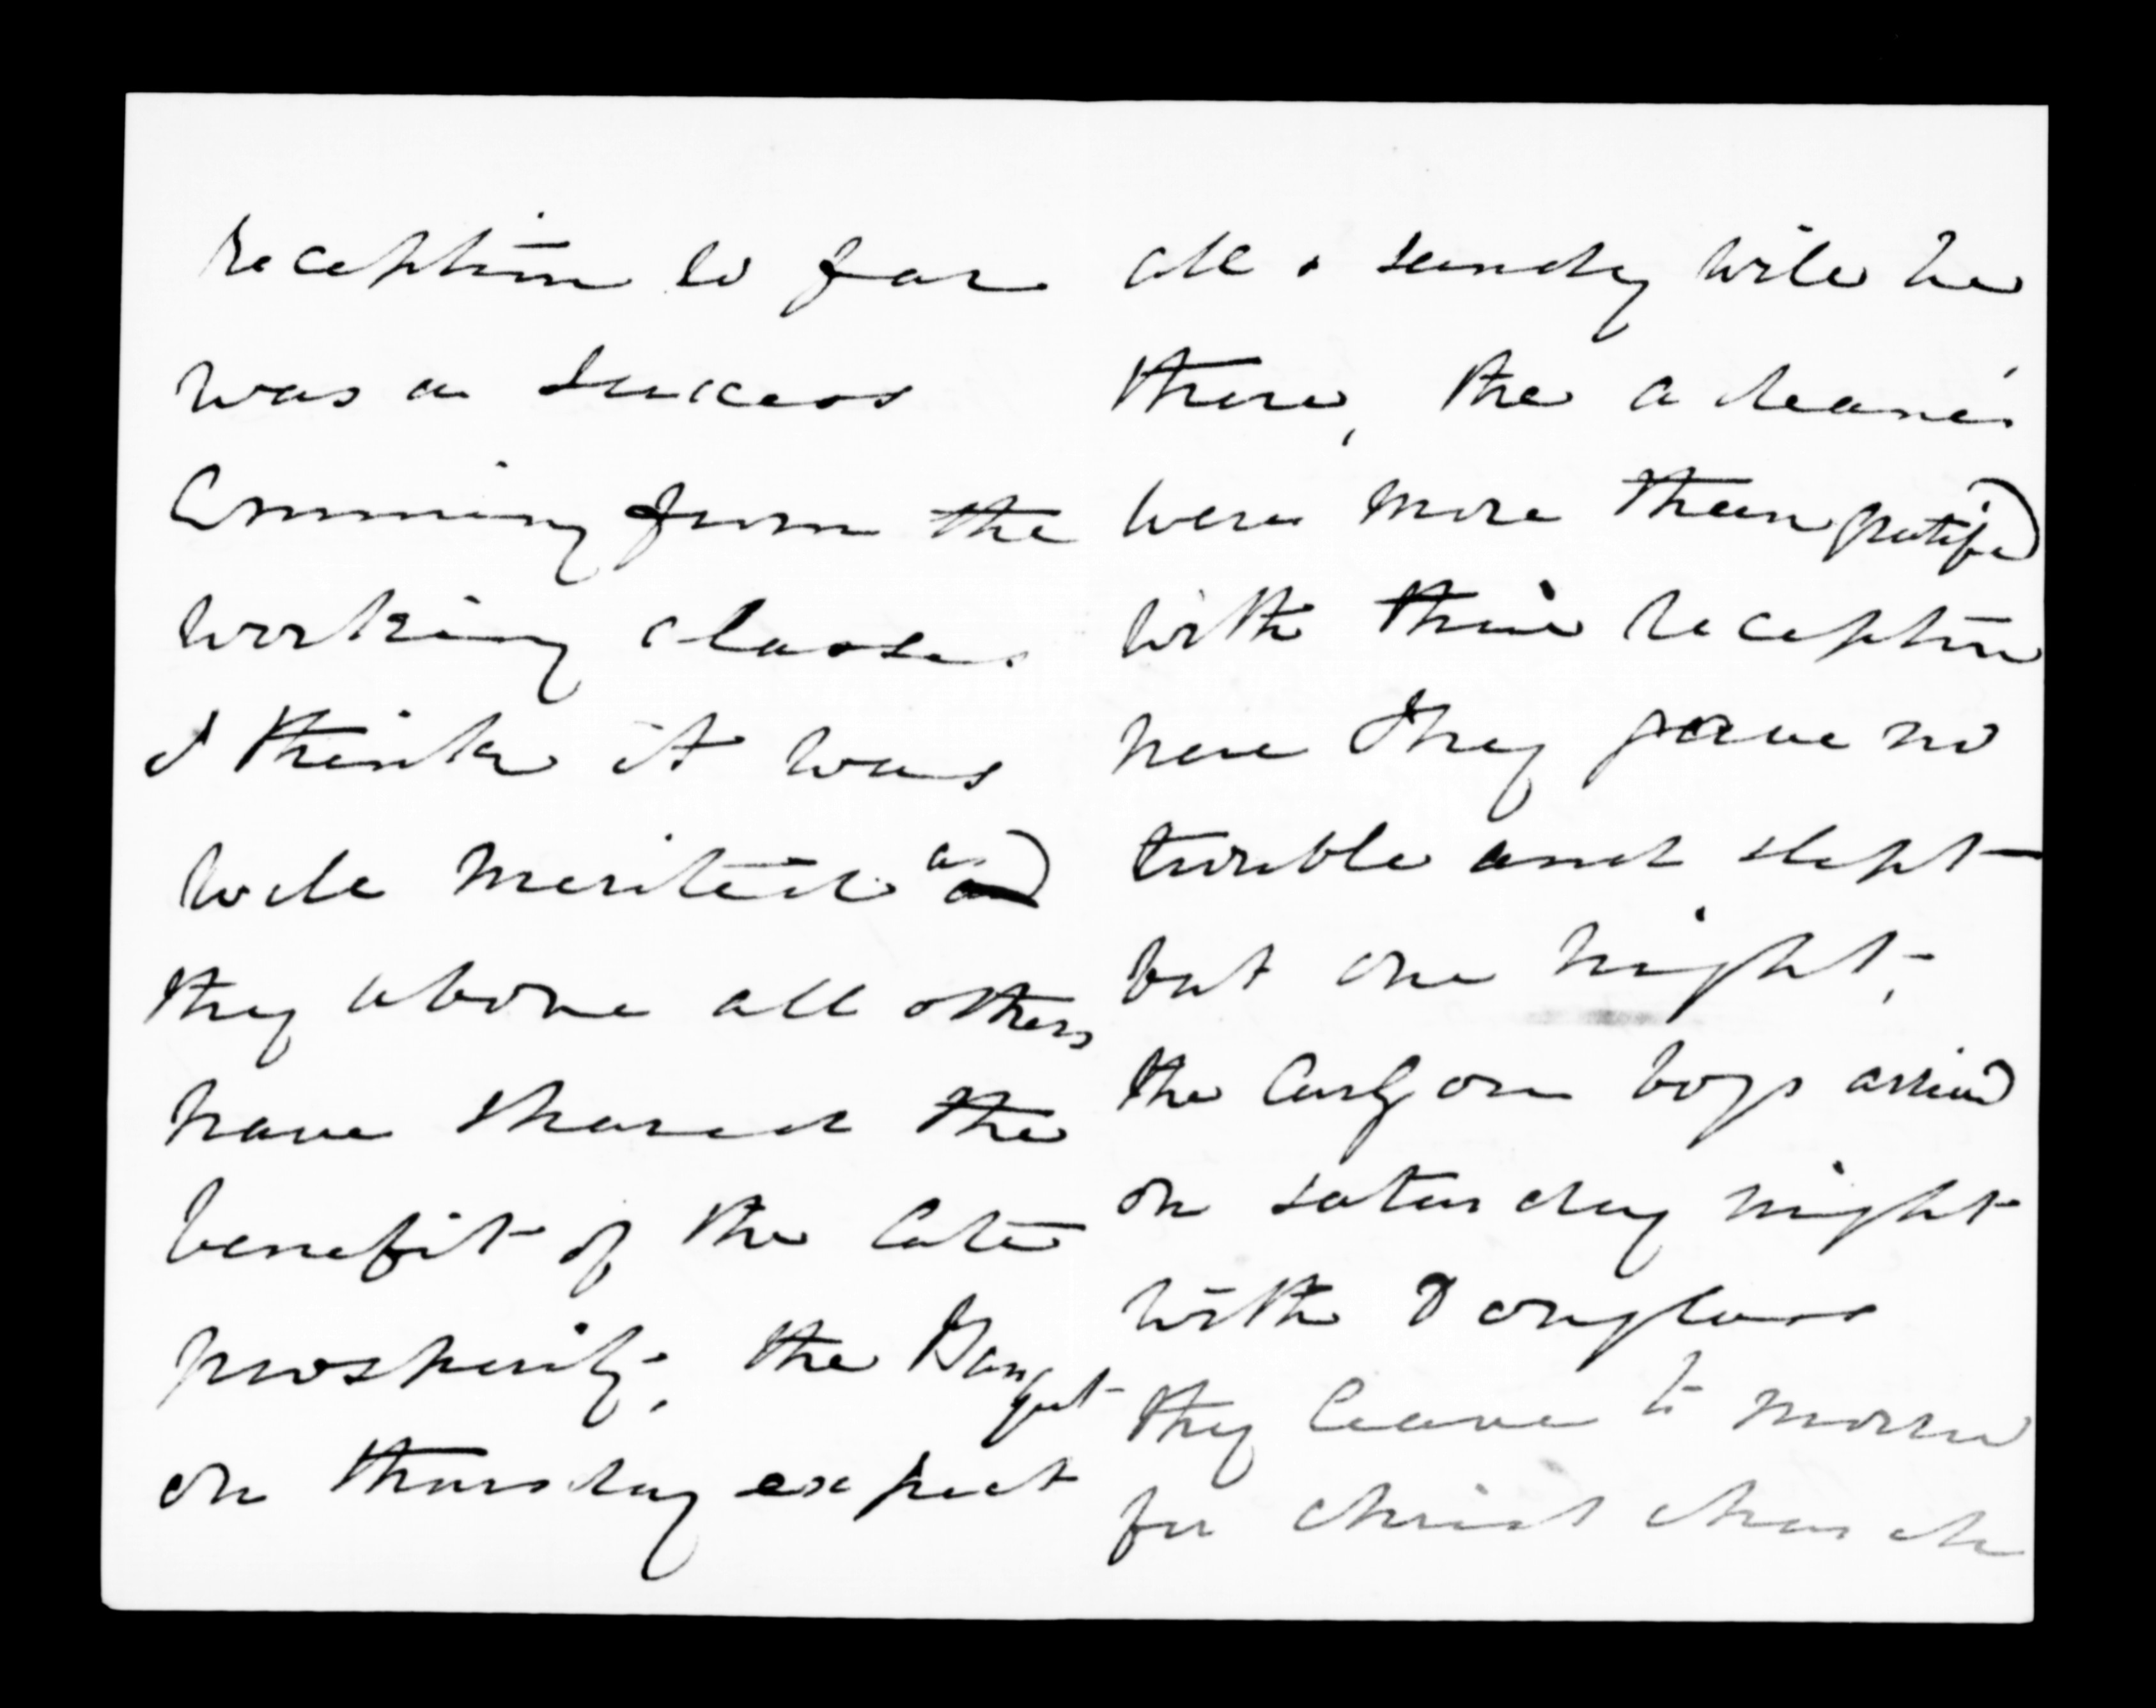 reception so far
was a success
Comming from the
working classes.
I think it was
well merited as
they above all others
have shared the
benefit of the late
prosperity, the Banquet
on thursday expect
all & sundy will be
there, the
were more than gratified
with their reception
here they gave no
trouble and slept
but one night,
the Curzon boys arrived
on saturday night
with Douglass
they leave to morrow
for christ church